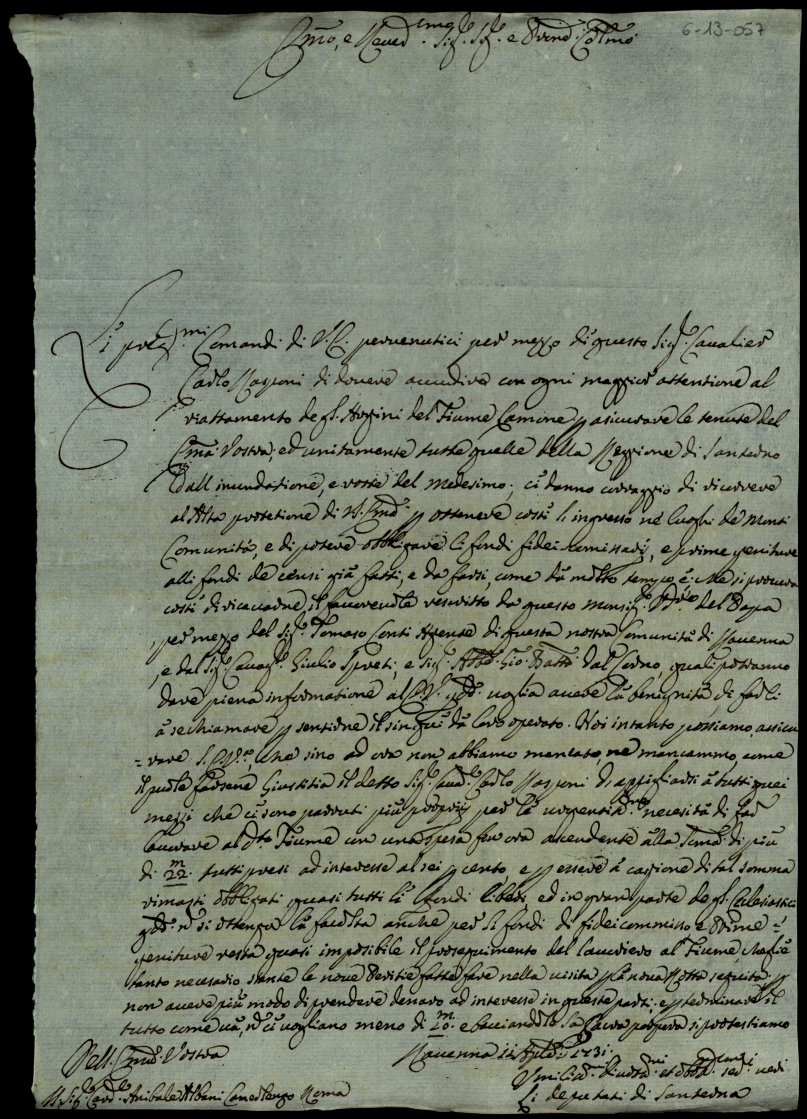 6-13-057
Emo, e Revedmo Sigr. Sigr. e Prond. Colmo
Li preg.mi Comandi di V.E. pervenutici per mezzo di questo Sigr. Cavalier
Carlo Rasponi di dovere accudire con ogni maggior attentione al
riattamento degl. Argini del Fiume Lamone p asicurare le tenute del
Ema. Vostra, ed unitamente tutte quelle della Reggione di Santerno
dall inundatione, e rotte del medesimo; ci danno coraggio di ricorrere
al Alta protetione di V. Emz. p ottenere costi l ingresso ne luoghi de Monti
Comunità, e di potere obbligare li fondi fidei comissarij, e prime geniture
alli fondi de censi già fatti, e da farsi, come da molto tempo è che si procura
costi di ricavarne, il favorevole rescritto da questo Monsig. del Papa
per mezzo del Sigr. Tomaso Conti Agente di questa nostra Comunità di Ravenna
e dal Sigr. Cavagr. Giulio Spreti, e Sigr. Abb. Gio. Batta. dal Corno, quali potranno
dare piena informatione al voglia avere la benignità di farli
à se chiamare p sentirne il sin qui da loro operato. Noi intanto possiamo assicu
=rare che sino ad ora non abbiamo mancato, ne mancammo, come
il puole farsene Giustitia il detto Sigr. Cavr. Carlo Rasponi di appigliarsi à tutti quei
mezzi che ci sono parsuti più proprij per la urgentissma necesità di far
lavorare al dto. Fiume con una spesa fin ora ascendente alla Soma di più
di 22.m tutti presi ad interesse al sei p cento, e p essere à caggione di tal somma
rimasti obbligati quasi tutti li fondi liberi ed in gran parte degl. Eclesiastici
se no si ottenga la facoltà anche per li fondi di fideicommisso e Prime=
geniture resta quasi imposibile il proseguimento del lavoriero al Fiume,
tanto necesario stante le nove Peritie fatte fare nella visita p la nova Rotta seguita, p
non avere più modo di prendere denaro ad interesse in queste parti; e p terminare il
tutto come và, no ci vogliano meno di 20.m e bacciandole la Sacra porpora si protestiamo
Dell. Emz. Vostra
Ravenna 11 Aple. 1731.
Umiliss. Devotmi. et obbl. servedi
Sigr. Card. Anibale Albani Camerlengo Roma
Li deputati di Santerno